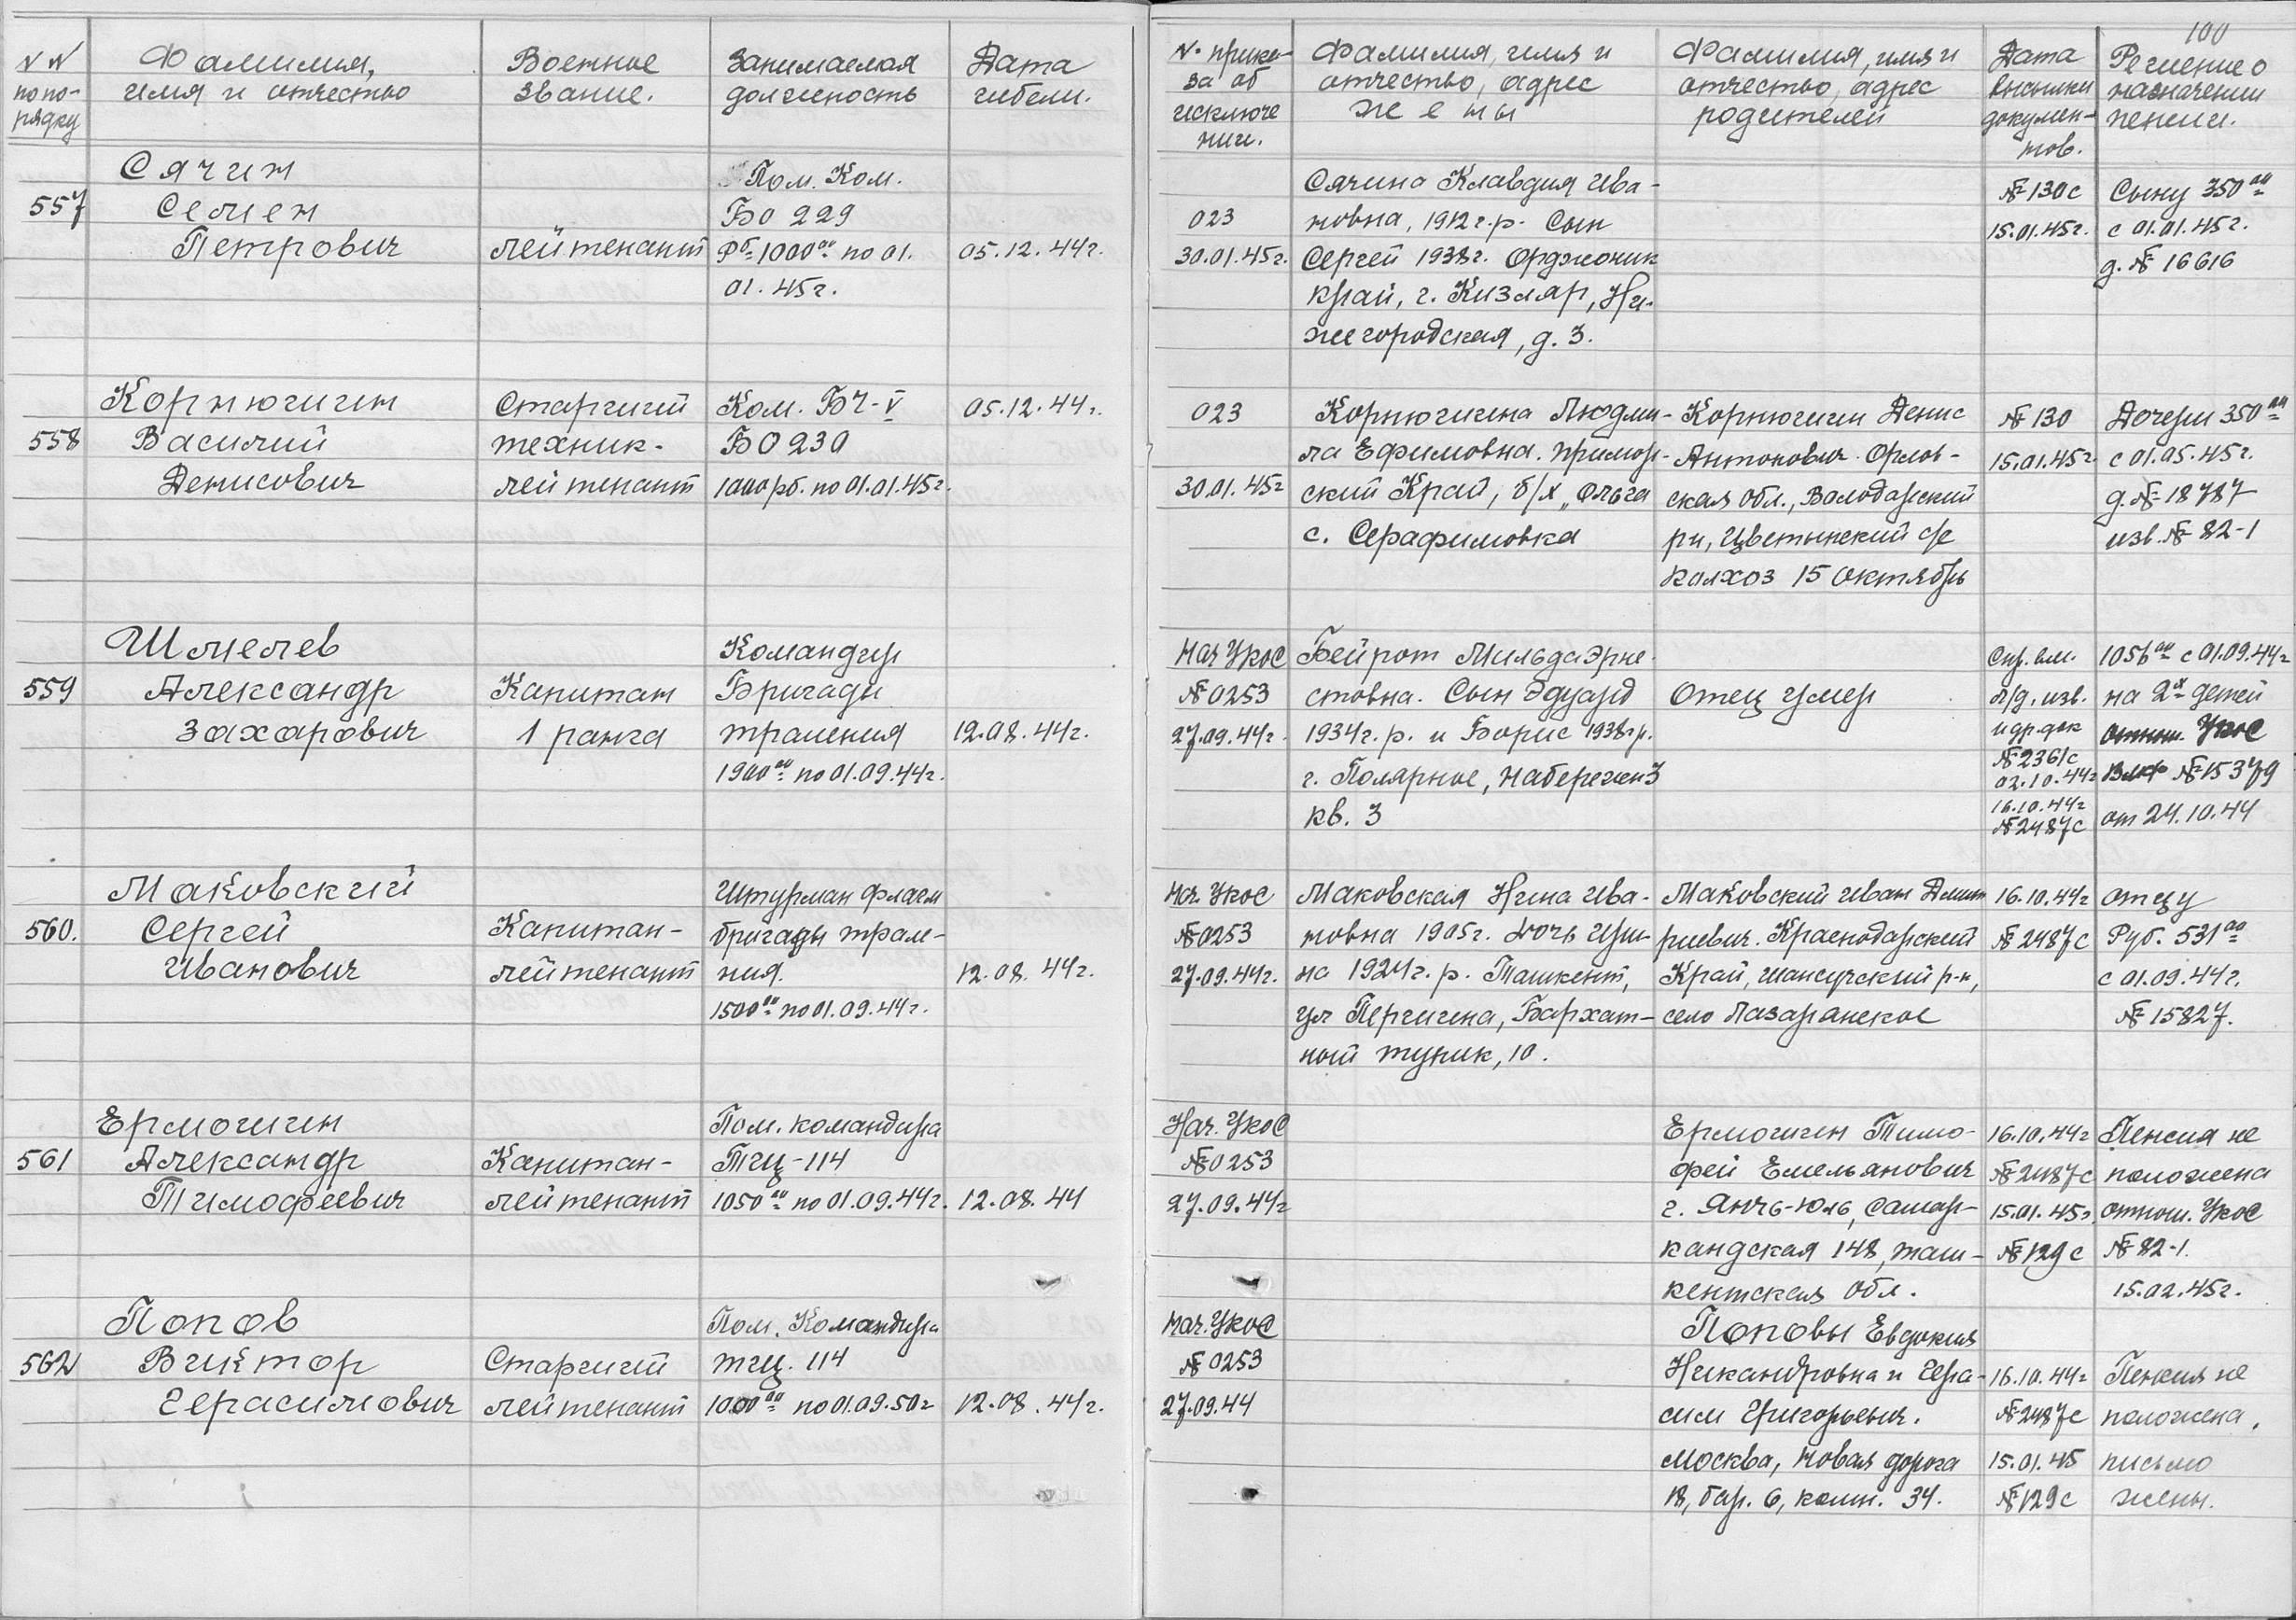 100
NN
по по-
рядку
Фамилия,
имя и отчество
Военное
звание.
Занимаемая
должность
Дата
гибели.
N. прика-
за об
исключе
нии.
Фамилия, имя и
отчество, адрес
жены
Фамилия, имя и
отчество, адрес
родителей
Дата
высылки
докумен-
тов.
Решение о
назначении
пенсии.
557
Сячин
Семен
Петрович
лейтенант
Пом. Ком.
БО 229
Рб=1000 00 по 01.
01. 45г.
05.12.44г.
023
30.01.45г.
Сячина Клавдия Ива-
новна, 1912г.р. Сын
Сергей 1938г. Орджоник
край, г. Кизляр, Ни-
жегородская, д. 3.
№130с
15.01.45г.
Сыну 350 00
с 01.01.45г.
д. № 16616
558
Корнюшин
Василий
Денисович
Старший
техник-
лейтенант
Ком. БЧ-V
БО 230
1000рб. по 01.01.45г.
05.12.44г.
023
30.01.45г
Корнюшина Людми-
ла Ефимовна. Примор-
ский Край, б/х „Ольга
с. Серафимовка
Корнюшин Денис
Антонович. Орлов-
ская обл., Володарский
рн, Цветынский с/с
колхоз 15 Октябрь
№130
15.01.45г
Дочери 350 00
с 01.05.45г.
д. № 18787
изв. № 82-1
559
Шмелев
Александр
Захарович
Капитан
1 ранга
Командир
Бригады
траления
1900 00 по 01.09.44г.
12.08.44г.
Нач УкоС
№0253
27.09.44г.
Бейрот Мильда Эрне-
стовна. Сын Эдуард
1934г.р. и Борис 1938г.р.
г. Полярное, Набережн 3
кв. 3
Отец умер
Спр. вм.
л/д, изв.
и др. док
№2361с
02.10.44г
16.10.44г
№2487с
1056 00 с 01.09.44г
на 2х детей
отнош. УкоС
№15379
от 24.10.44
560.
Маковский
Сергей
Иванович
Капитан-
лейтенант
Штурман флагм
бригады трале-
ния.
1500 00 по 01.09.44г.
12.08.44г.
Нач. УкоС
№0253
27.09.44г.
Маковская Нина Ива-
новна 1905г. дочь Ири-
на 1924г.р. Ташкент,
ул Першина, Бархат-
ный тупик, 10.
Маковский Иван Дмит
риевич. Краснодарский
Край, Шапсугский р-н,
село Лазаранское
16.10.44г
№2487с
отцу
Руб. 531 00
с 01.09.44г.
№15827.
561
Ермошин
Александр
Тимофеевич
Капитан-
лейтенант
Пом. командира
ТЩ-114
1050 00 по 01.09.44г.
12.08.44
Нач. УкоС
№0253
27.09.44г
Ермошин Тимо-
фей Емельянович
г. Янгъ-Юль, Самар-
кандская 148, таш-
кентская обл.
16.10.44г
№2487с
15.01.45г.
№129с
Пенсия не
положена
отнош. УкоС
№82-1.
15.02.45г.
562
Попов
Виктор
Герасимович
Старший
лейтенант
Пом. Командира
тщ. 114
1000 00 по 01.09.50г
12.08.44г.
Нач. УкоС
№0253
27.09.44
Поповы Евдокия
Никандровна и Гера-
сим Григорьевич.
Москва, Новая дорога
18, бар. 6, комн. 34.
16.10.44г
№2487с
15.01.45
№129с
Пенсия не
положена.
письмо
жены.